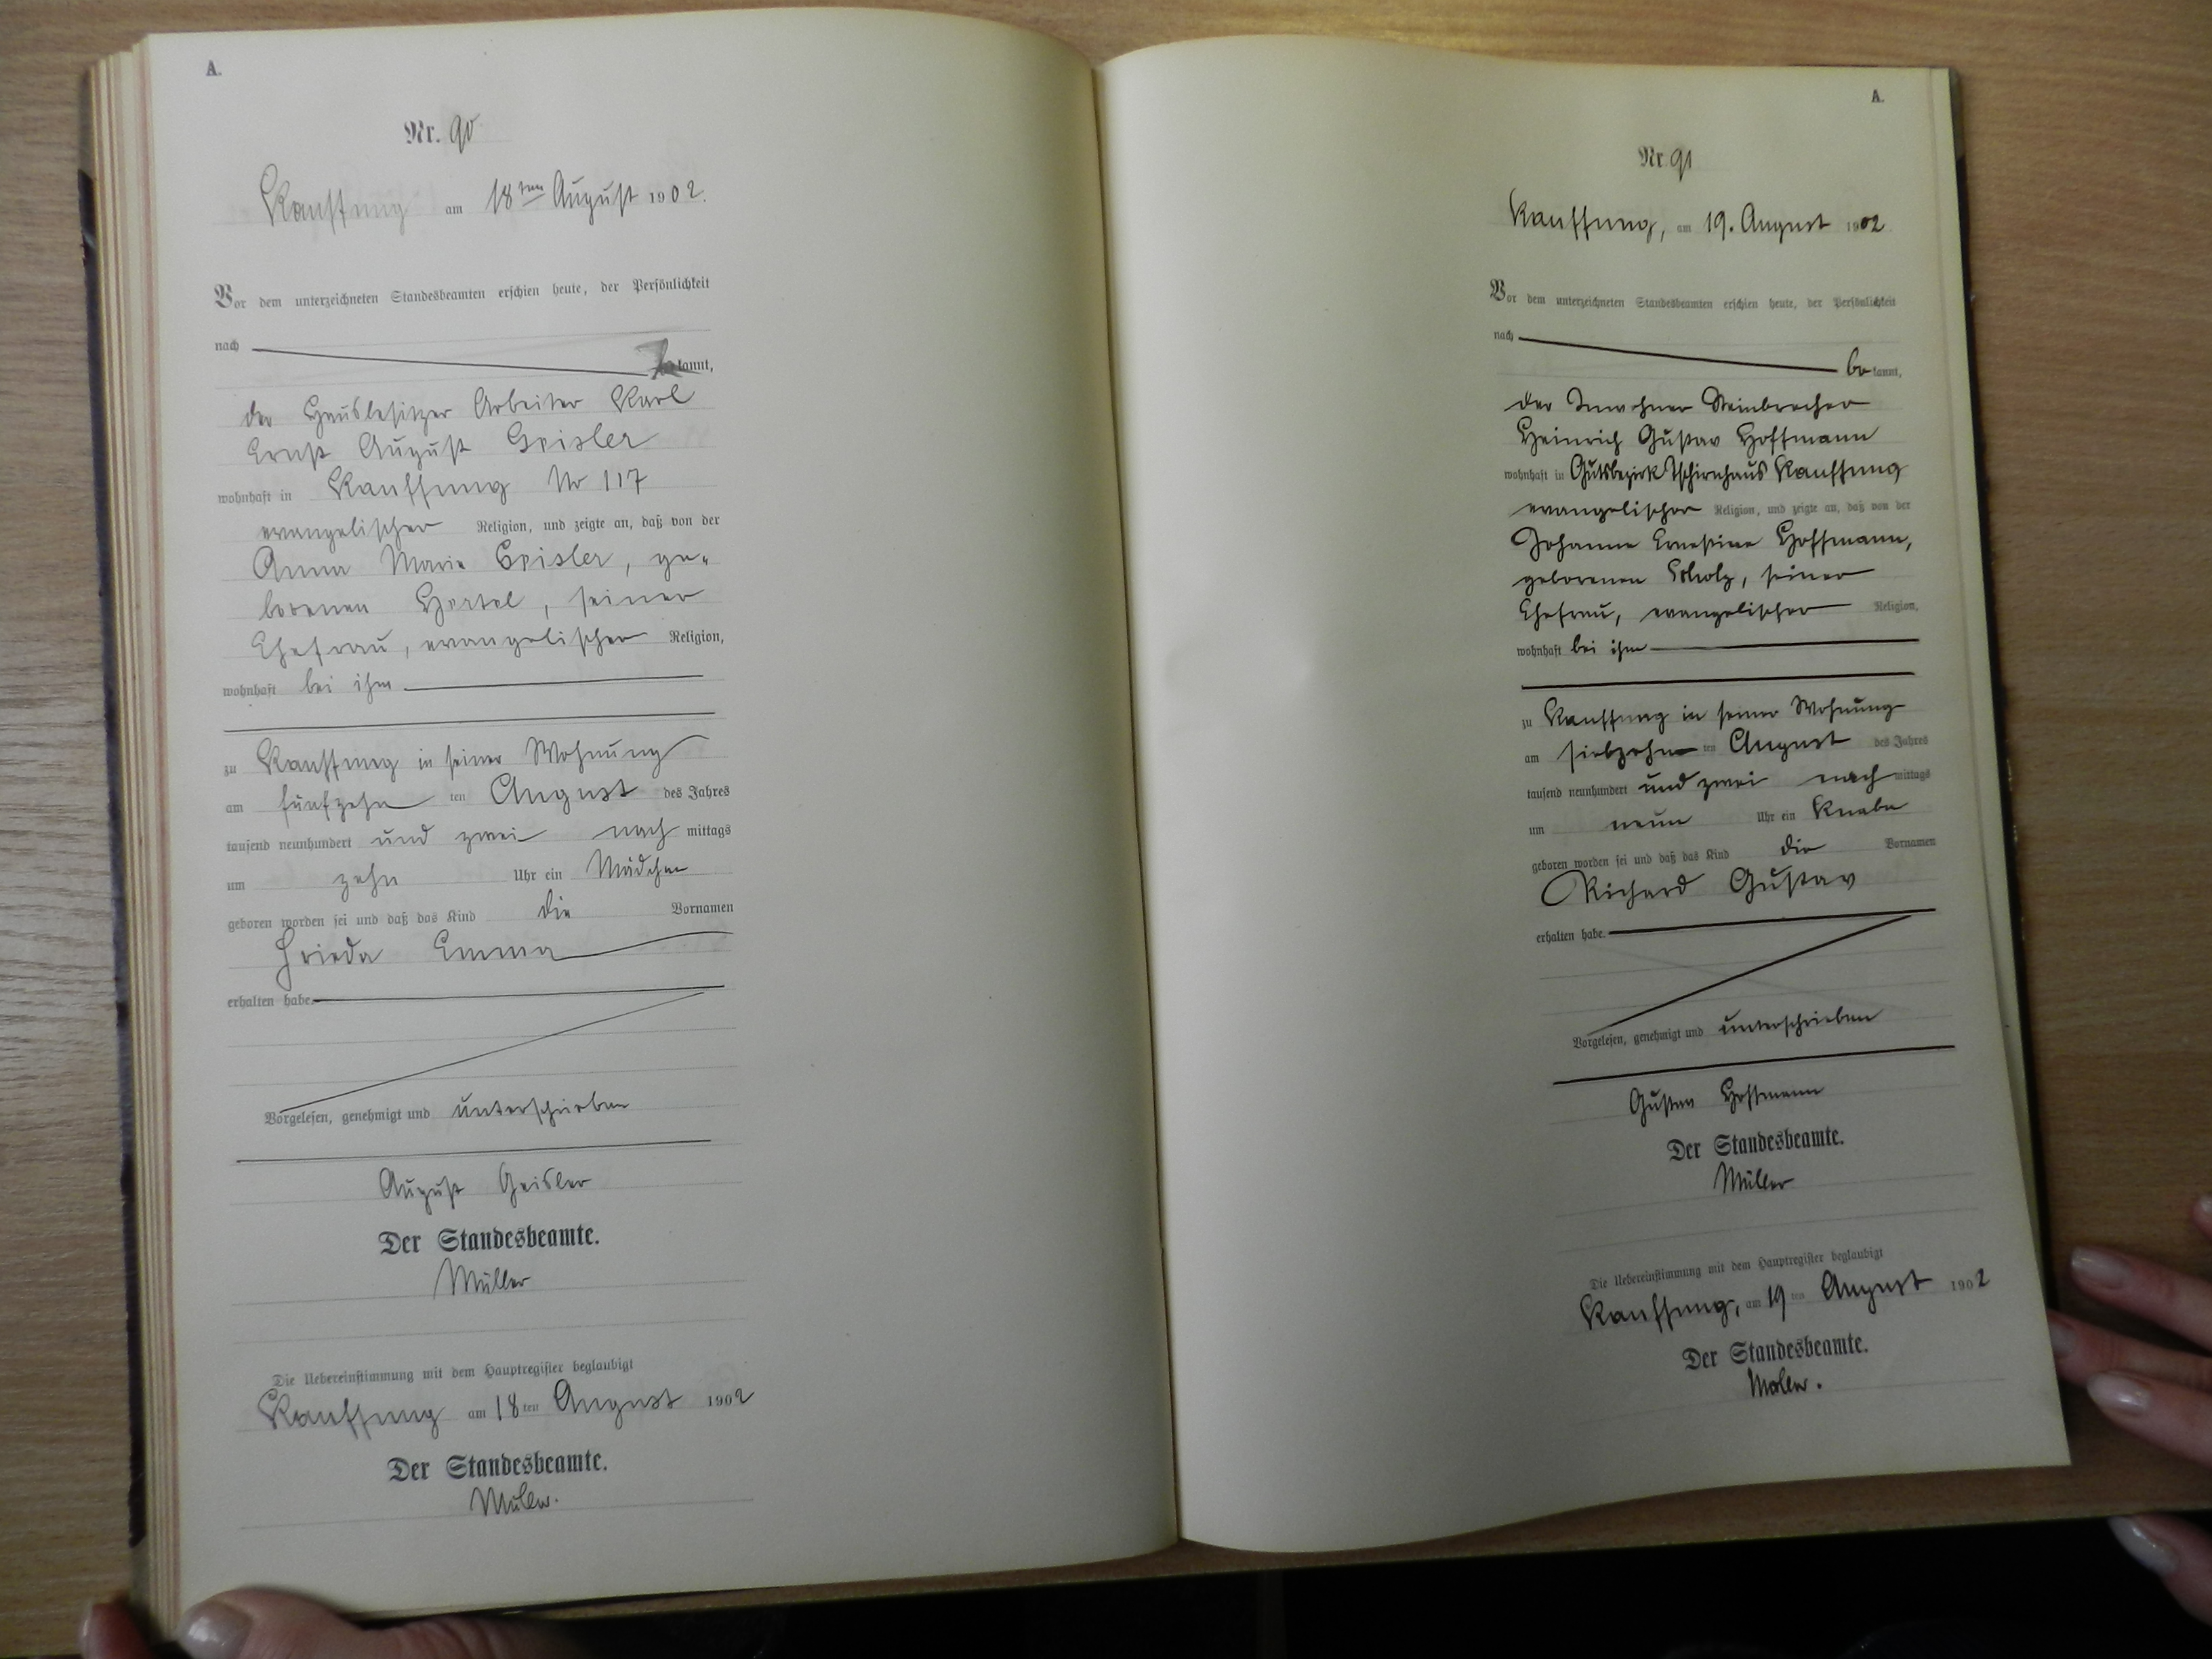 A.
Nr. 90
Kauffung am 18ten August 1902.
Vor dem unterzeichneten Standesbeamten erschien heute, der Persönlichkeit
nach
kannt,
der Hausbesitzer Arbeiter Karl
Ernst August Geisler
wohnhaft in Kauffung No 117
evangelischer Religion, und zeigte an, daß von der
Anna Marie Geisler, ge-
borenen Hertel, seiner
Ehefrau, evangelischer Religion,
wohnhaft bei ihm
zu Kauffung in seiner Wohnung
am fünfzehn ten August des Jahres
tausend neunhundert und zwei nach mittags
um zehn Uhr ein Mädchen
geboren worden sei und daß das Kind die Vornamen
Frieda Emma
erhalten habe.
Vorgelesen, genehmigt und unterschrieben
August Geisler
Der Standesbeamte.
Müller
Die Uebereinstimmung mit dem Hauptregister beglaubigt
Kauffung am 18ten August 1902
Der Standesbeamte.
Müller.
A.
Nr 91
Kauffung, am 19. August 1902
Vor dem unterzeichneten Standesbeamten erschien heute, der Persönlichkeit
nach
be kannt,
der Inwohner Steinbrecher
Heinrich Gustav Hoffmann
wohnhaft in Gutsbezirk Tschirnhaus Kauffung
evangelischer Religion, und zeigte an, daß von der
Johanne Ernestine Hoffmann,
geborenen Scholz, seiner
Ehefrau, evangelischer Religion,
wohnhaft bei ihm
zu Kauffung in seiner Wohnung
am siebzehn ten August des Jahres
tausend neunhundert und zwei nach mittags
um neun Uhr ein Knabe
geboren worden sei und daß das Kind die Vornamen
Richard Gustav
erhalten habe.
Vorgelesen, genehmigt und unterschrieben
Gustav Hoffmann
Der Standesbeamte.
Müller
Die Uebereinstimmung mit dem Hauptregister beglaubigt
Kauffung, am 19 ten August 1902
Der Standesbeamte.
Müller.